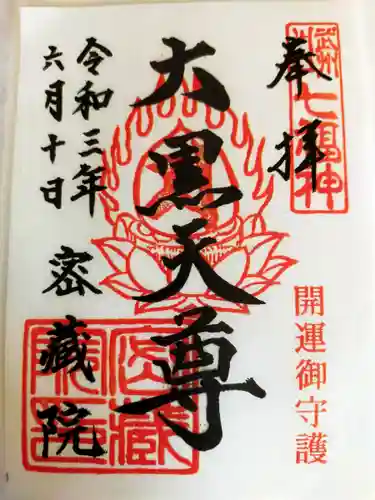 奉拝
武州
七福神
開運御守護
大黒天尊
令和三年
六月十日
密蔵院
密蔵院印